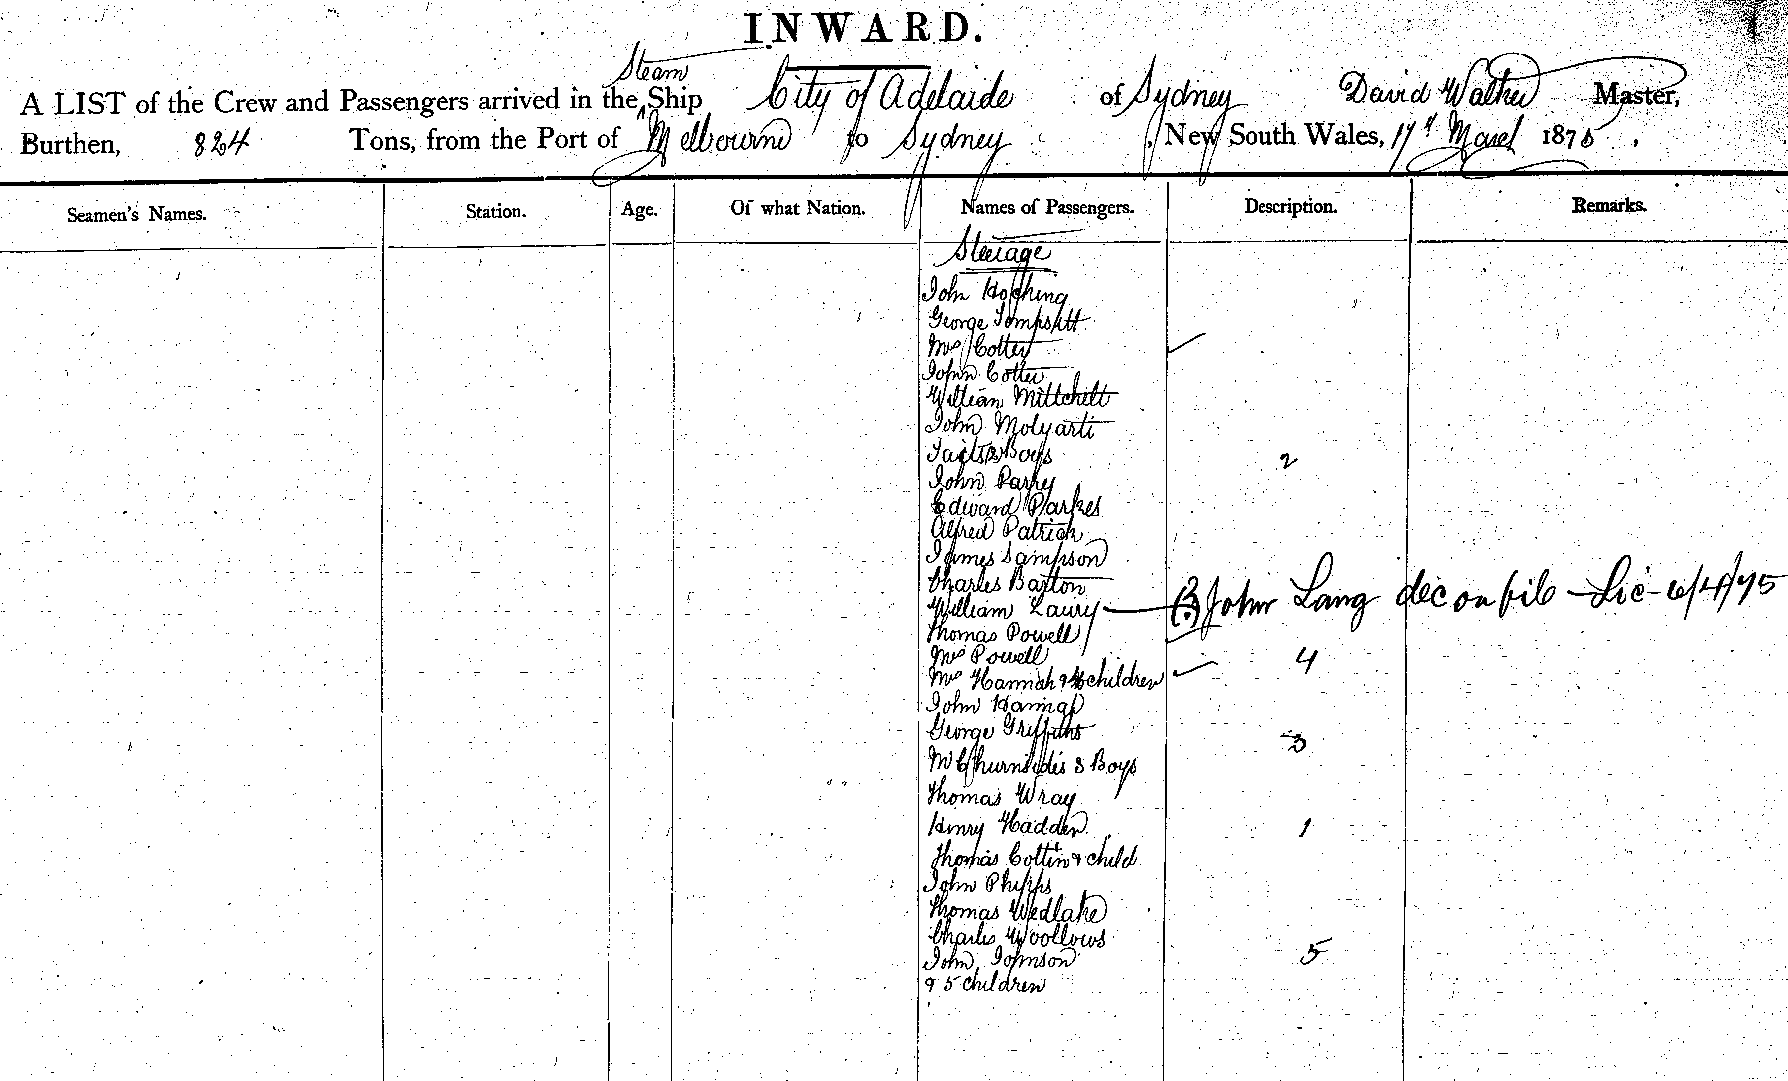 INWARD.
Steam
A LIST of the Crew and Passengers arrived in the Ship City of Adelaide of Sydney David Walker Master,
Burthen, 824 Tons, from the Port of Melbourne to Sydney, New South Wales, 17th March 1875.
Seamen's Names. Station. Age. Of what Nation. Names of Passengers. Description. Remarks.
Steerage
John Hocking
George Tompsitt
Mrs Cotter
John Cotter
William Mittchell
John Molyarti
Boys 2
John Parry
Edward Parkes
Alfred Patrick
James Sampson
Charles Barton
William Laury John Lang dec on file - Lic - 6/4/75
Thomas Powell
Mrs Powell
Mrs Hannah & 4 children 4
John
George Griffiths
3 Boys 3
Thomas Wray
Henry Hadden
Thomas Cottin & child 1
John Phipps
Thomas Wedlake
Charles Woollows
John Johnson
& 5 children 5